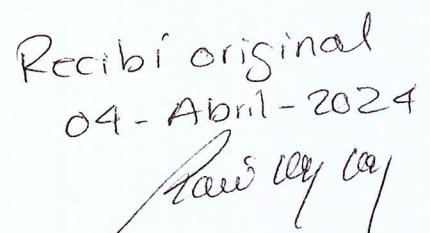 Recibí original
04 - Abril - 2024